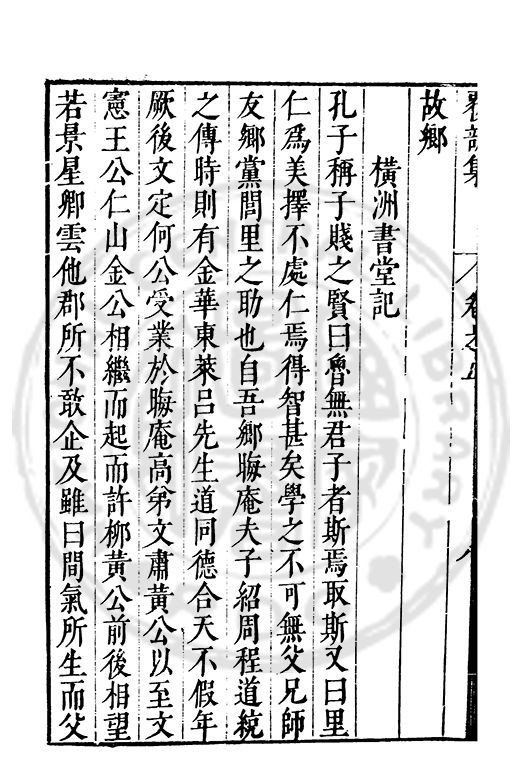 集
故鄉
橫洲書堂記
孔子稱子賤之賢曰魯無君子者斯焉取斯又曰里
仁爲美擇不處仁焉得智甚矣學之不可無父兄師
友鄉黨閭里之助也自吾鄉晦庵夫子紹周程道統
之傳時則有金華東萊呂先生道同德合天不假年
厥後文定何公受業於晦庵高弟文肅黃公以至文
憲王公仁山金公相繼而起而許柳黃公前後相望
若景星卿雲他郡所不敢企及雖曰間氣所生而父